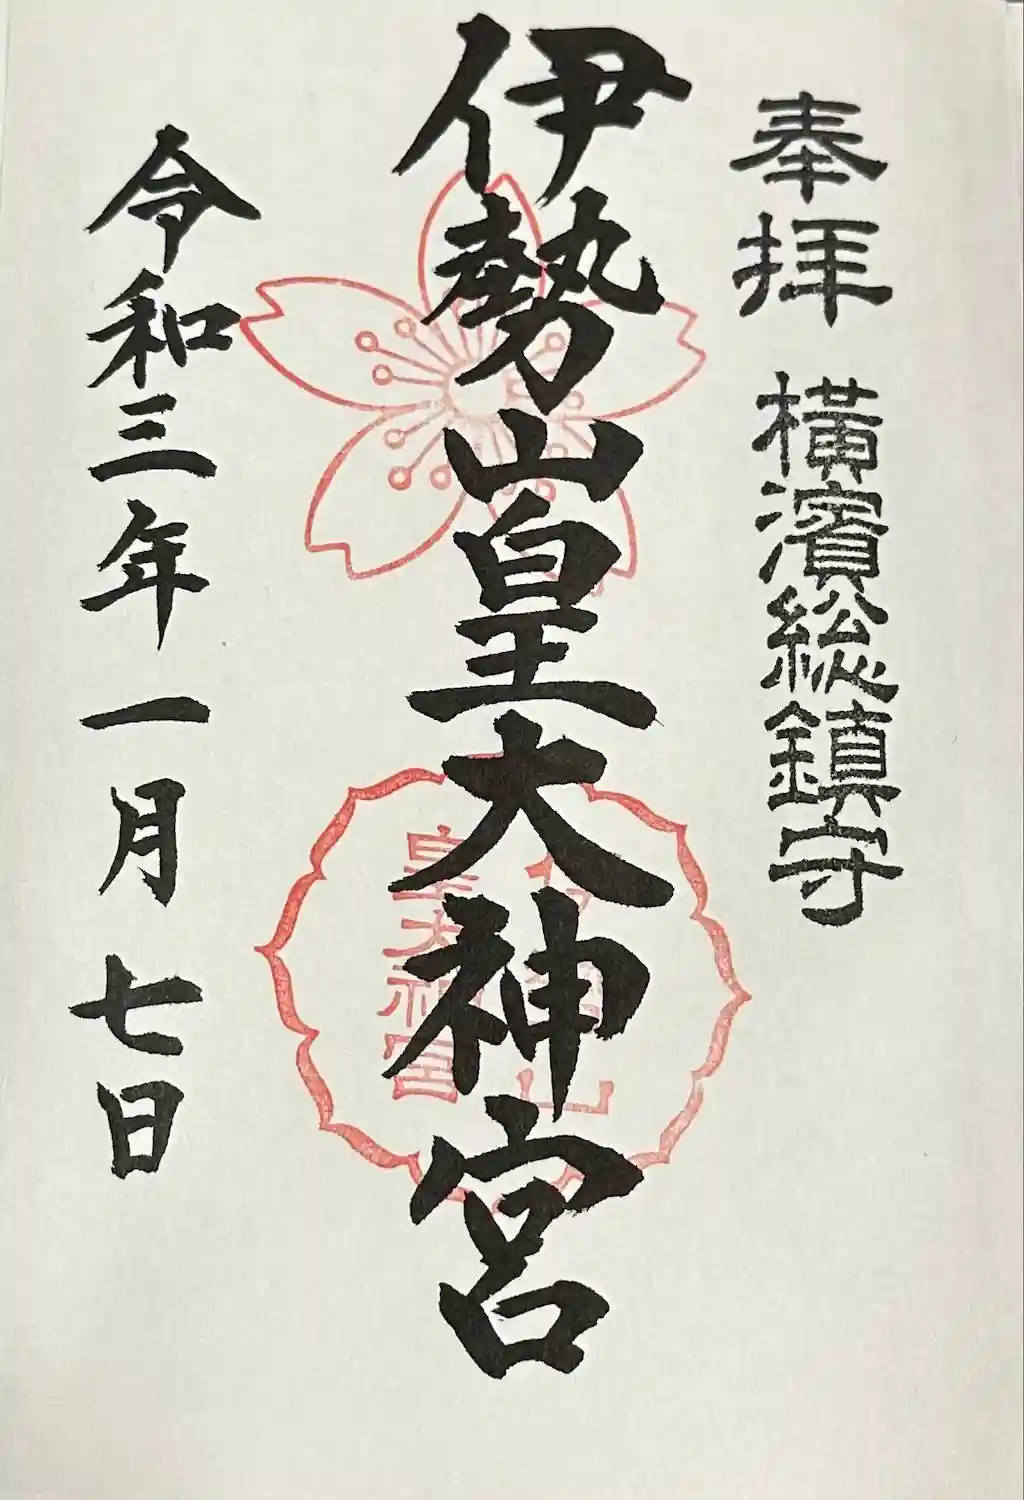 奉拝 横濱総鎮守
伊勢山皇大神宮
伊勢山
皇大神宮
令和三年一月七日